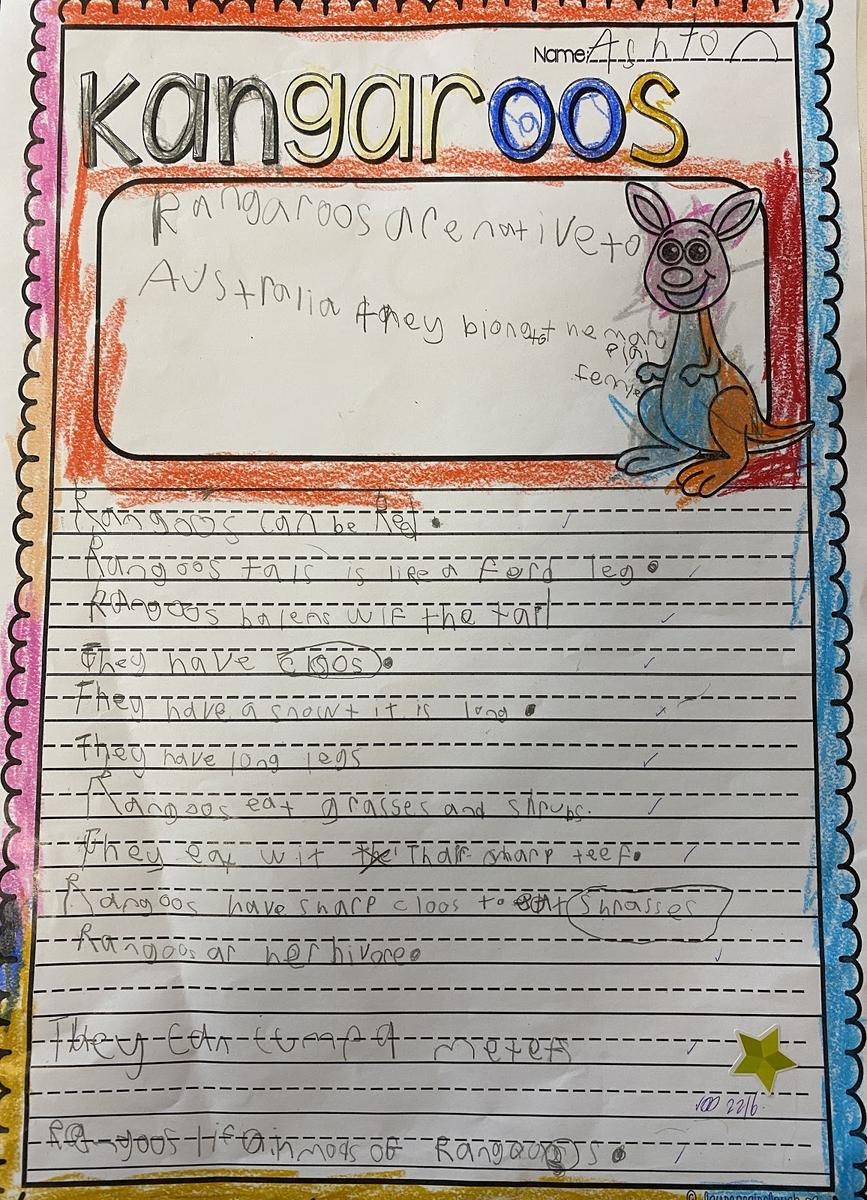 Name: Ashton
kangaroos
Kangaroos are native to
Australia they
Kangoos can be Red.
Kangoos tals is like a ford leg.
Kangoos balens wif the tail
They have cloos.
They have a snowt it is long.
They have long legs
Kangoos eat grasses and shrubs.
They eat wit Thair sharp teef.
Kangoos have sharp cloos to eat Shrasses
Kangoos ar herbivore.
They can
meters
22/6.
Kangoos of Kangaroos.